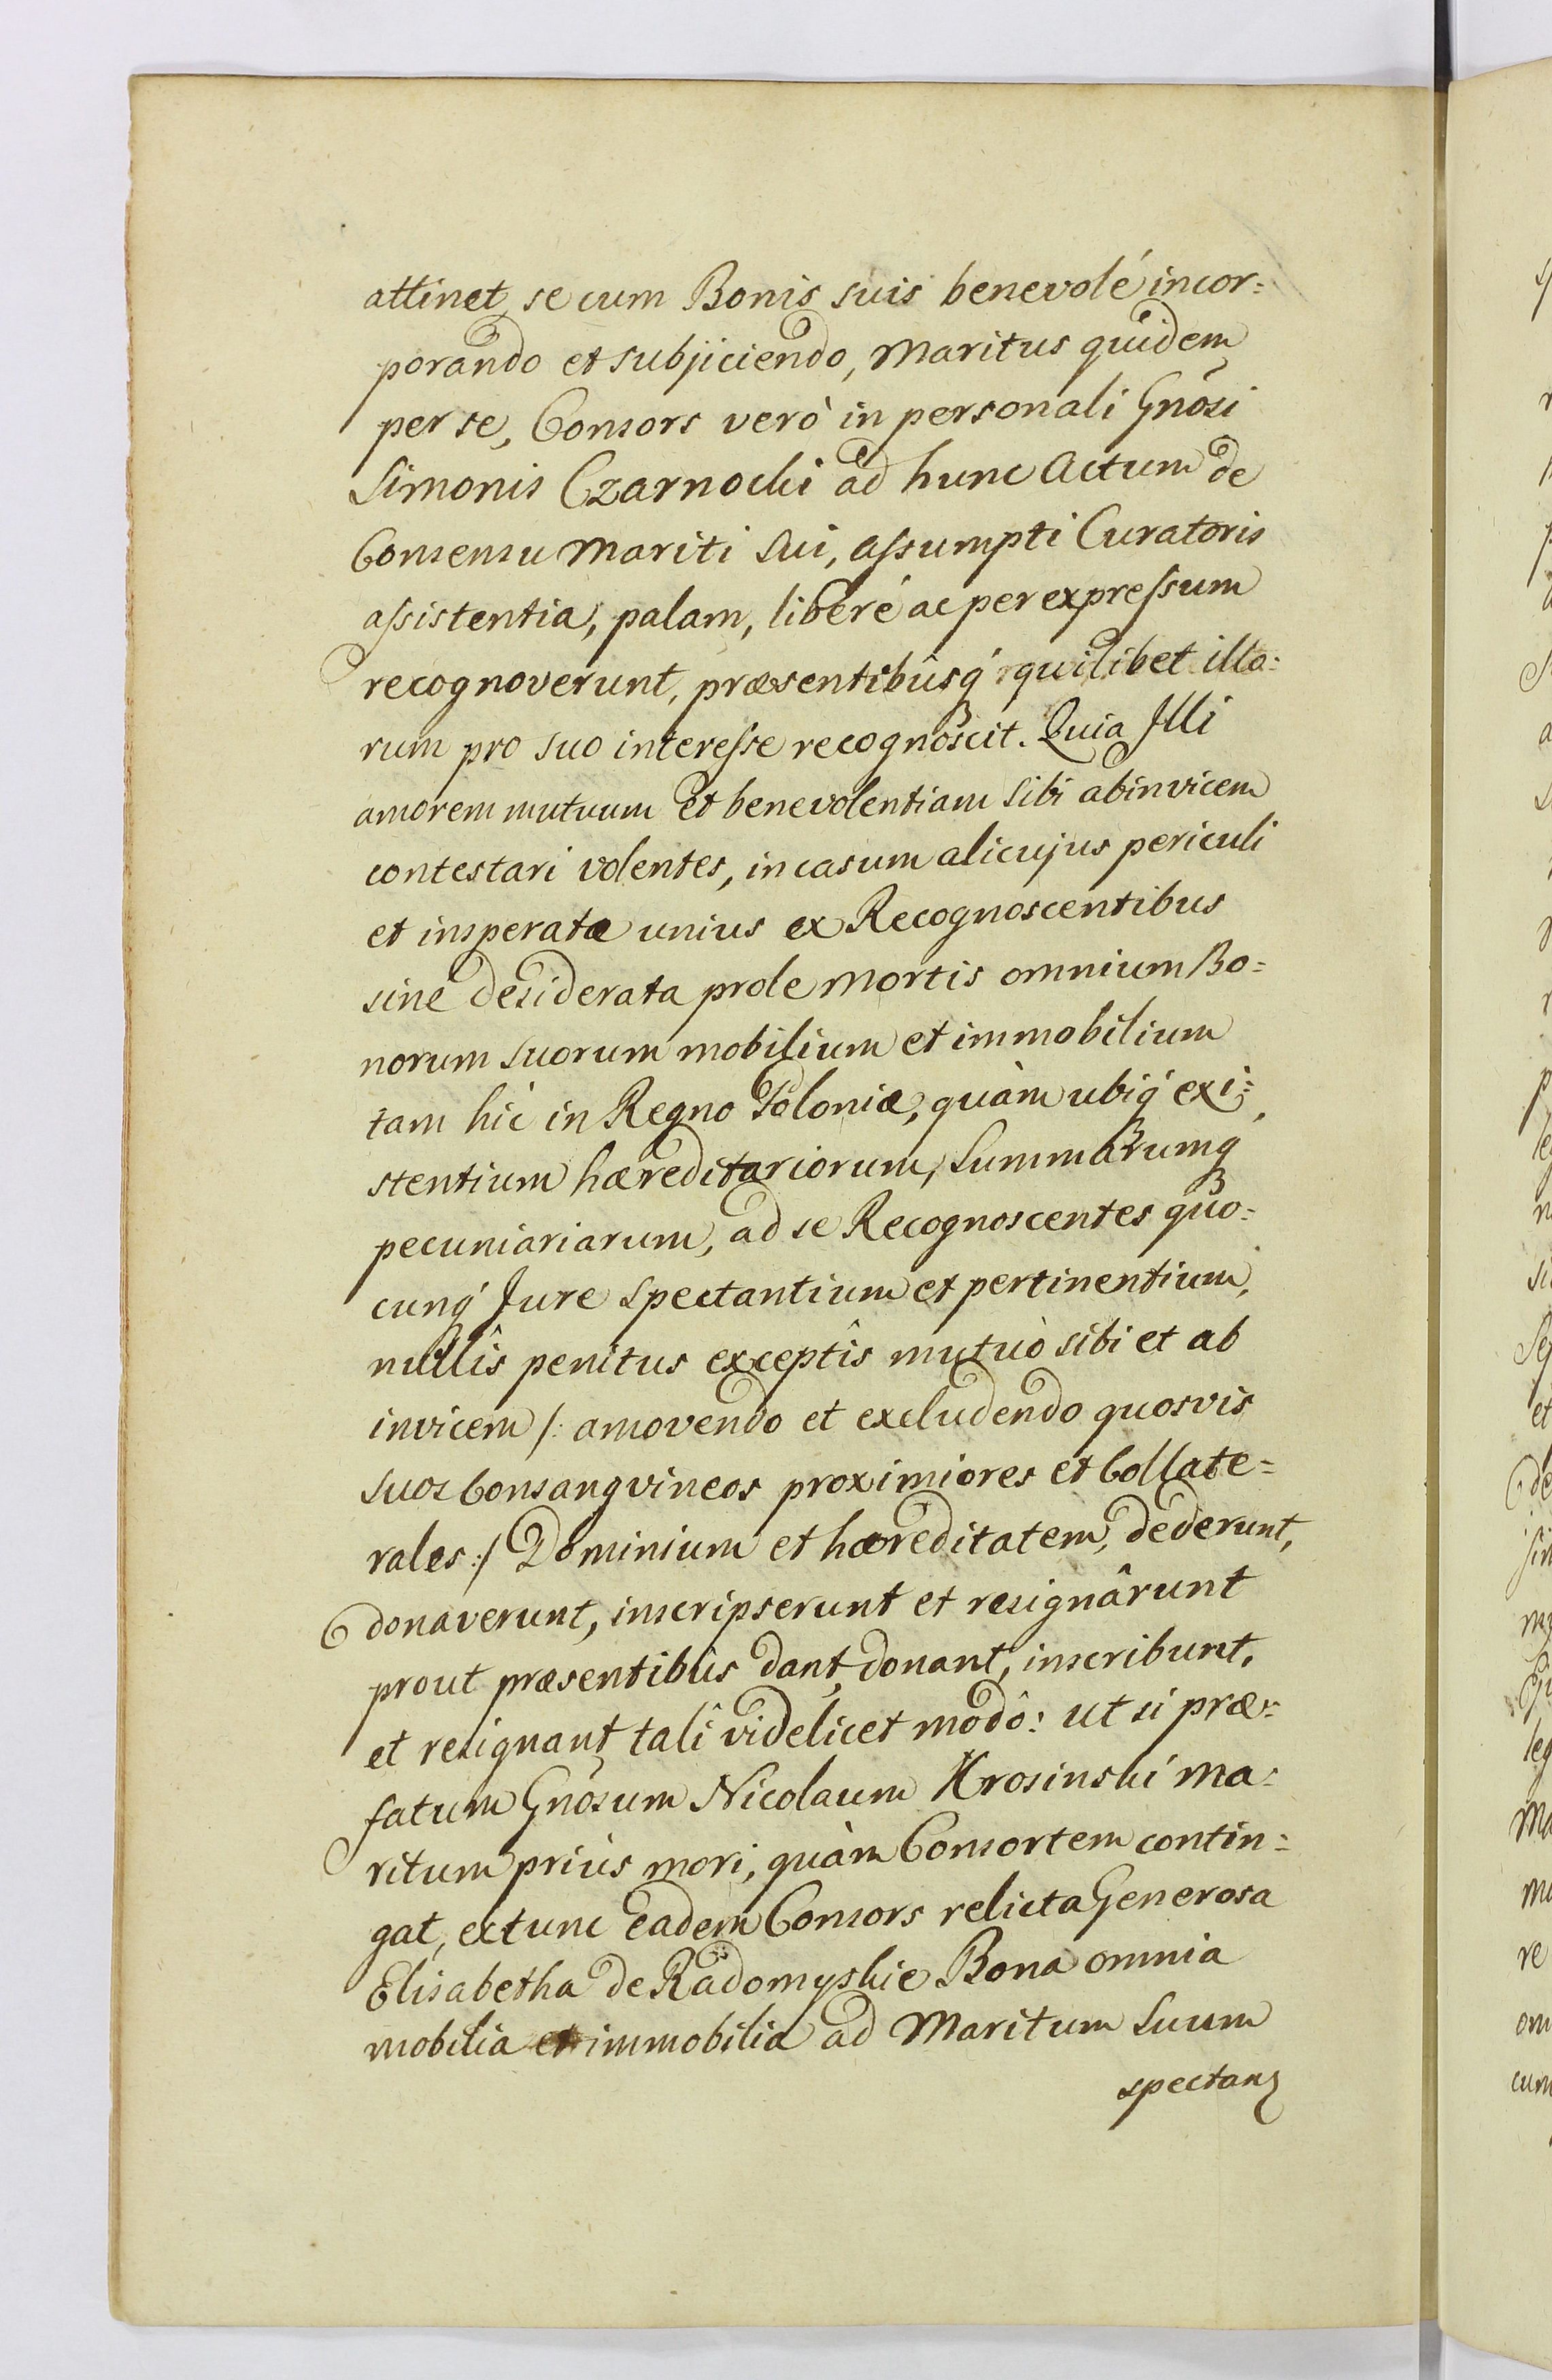 attinet, se cum Bonis suis benevolé incor=
porando et subjiciendo, Maritus quidem
per se, Consors verò in personali Gnõsi
Simonis Czarnocki ad hunc Actum de
Consensu Mariti Sui, aſsumpti Curatoris
aſsistentia, palam, liberé ac per expreſsum
recognoverunt, præsentibûsq́ quilibet illo=
rum pro suo intereſse recognoscit. Quia Illi
amorem mutuum et benevolentiam Sibi abinvicem
contestari volentes, in casum alicujus periculi
et insperatæ unius ex Recognoscentibus
sine desiderata prole Mortis omnium Bo=
norum suorum mobilium et immobilium
tam hic in Regno Poloniæ, quàm ubiq́ exi=
stentium hæreditariorum, Summarumq́
pecuniariarum, ad se Recognoscentes quo=
cunq́ Jure spectantium et pertinentium,
nullîs penitus exceptîs mutuò sibi et ab
invicem /: amovendo et excludendo quosvis
suos Consangvineos proximiores et Collate=
rales :/ Dominium et hæreditatem, dederunt,
donaverunt, inscripserunt et resignârunt
prout præsentibûs dant, donant, inscribunt,
et resignant talî videlicet modô: ut si præ=
fatum Gnõsum Nicolaum Krosinski Ma=
ritum priùs mori, quàm Consortem contin=
gat, extunc eadem Consors relicta Generosa
Elisabetha de Radomyskie Bona omnia
mobilia et immobilia ad Maritum Suum
spectan